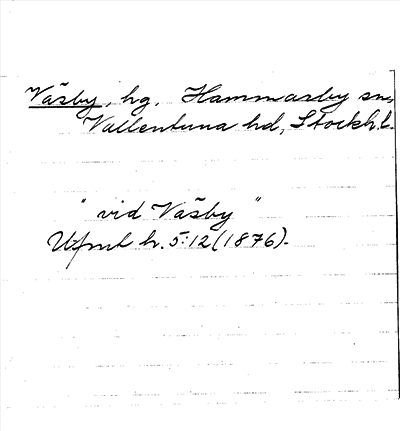 Väsby, hg, Hammarby sn,
Vallentuna hd, Stockh.l.
"vid Väsby"
Upml h. 5:12 (1876).